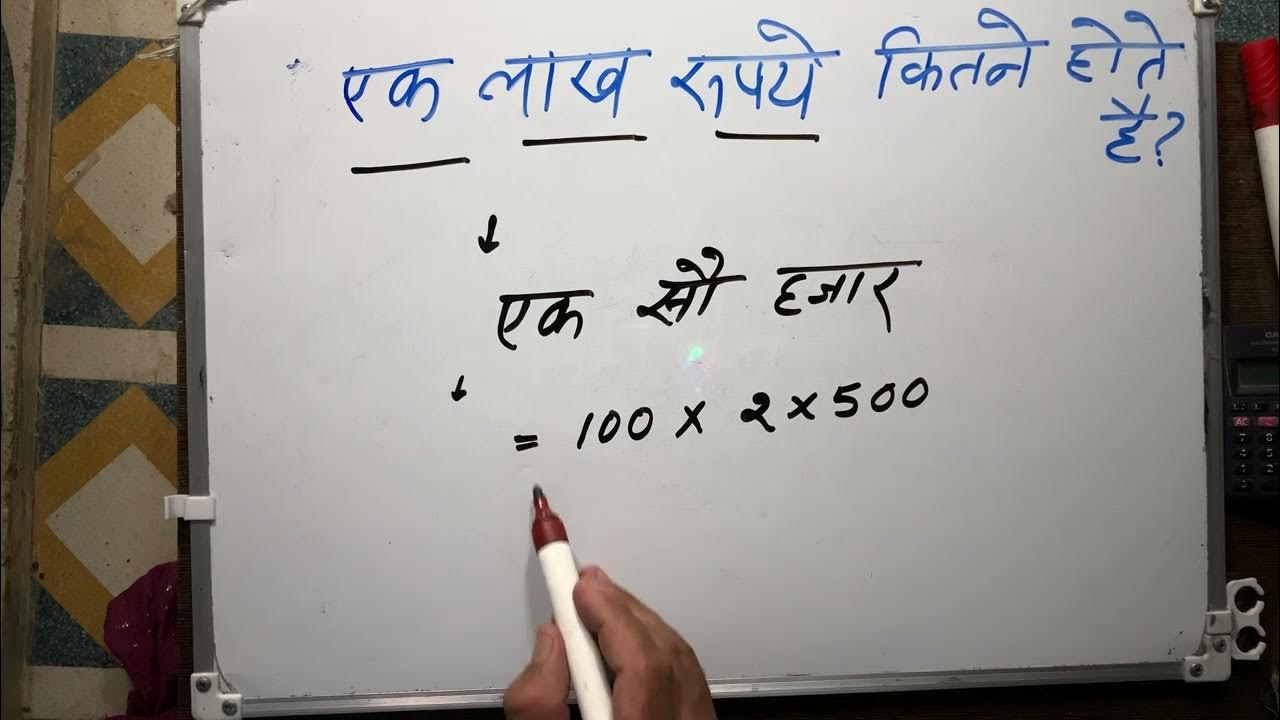 एक लाख रूपये कितने होते
है?
↓
एक सौ हजार
↓
= 100 x 2 x 500